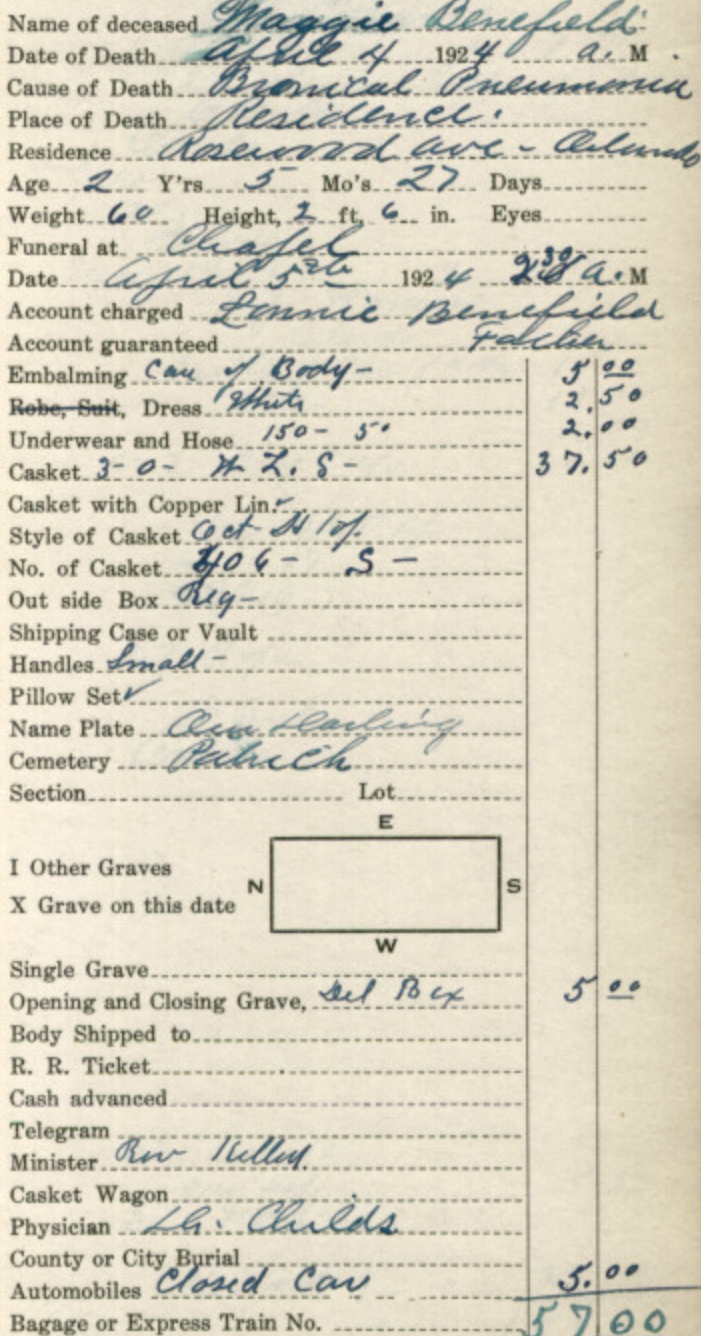 Name of deceased Maggie Benefield
Date of Death April 4 1924 a. M.
Cause of Death Bronical Pneumonia
Place of Death Residence.
Residence Rosewood ave - Orlando
Age 2 Y'rs 5 Mo's 27 Days
Weight 60 Height, 2 ft, 6 in. Eyes
Funeral at Chapel
Date April 5th 1924 30 a. M
Account charged Lonnie Benefield
Account guaranteed Father
Embalming Care of Body - 5 00
Robe, Suit, Dress White 2.50
Underwear and Hose 150 - 50 2.00
Casket 3-0- 37.50
Casket with Copper Lin.
Style of Casket Oct
No. of Casket 406 - S -
Out side Box Reg -
Shipping Case or Vault
Handles Small -
Pillow Set ✓
Name Plate Our Darling
Cemetery Patrick
Section Lot
E
I Other Graves
N S
X Grave on this date
W
Single Grave
Opening and Closing Grave, Del Box 5 00
Body Shipped to
R. R. Ticket
Cash advanced
Telegram
Minister Rev Kelley
Casket Wagon
Physician Dr. Childs
County or City Burial
Automobiles Closed Car 5.00
Bagage or Express Train No. 57 00